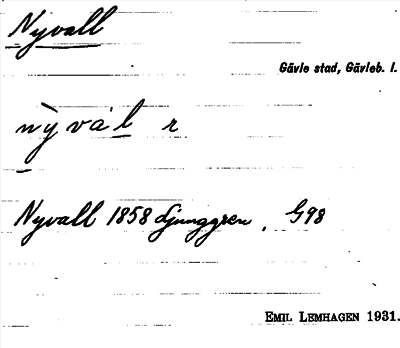 Nyvall
Gävle stad, Gävleb. l.
nỳvál r
Nyvall 1858 Ljunggren, G98
EMIL LEMHAGEN 1931.